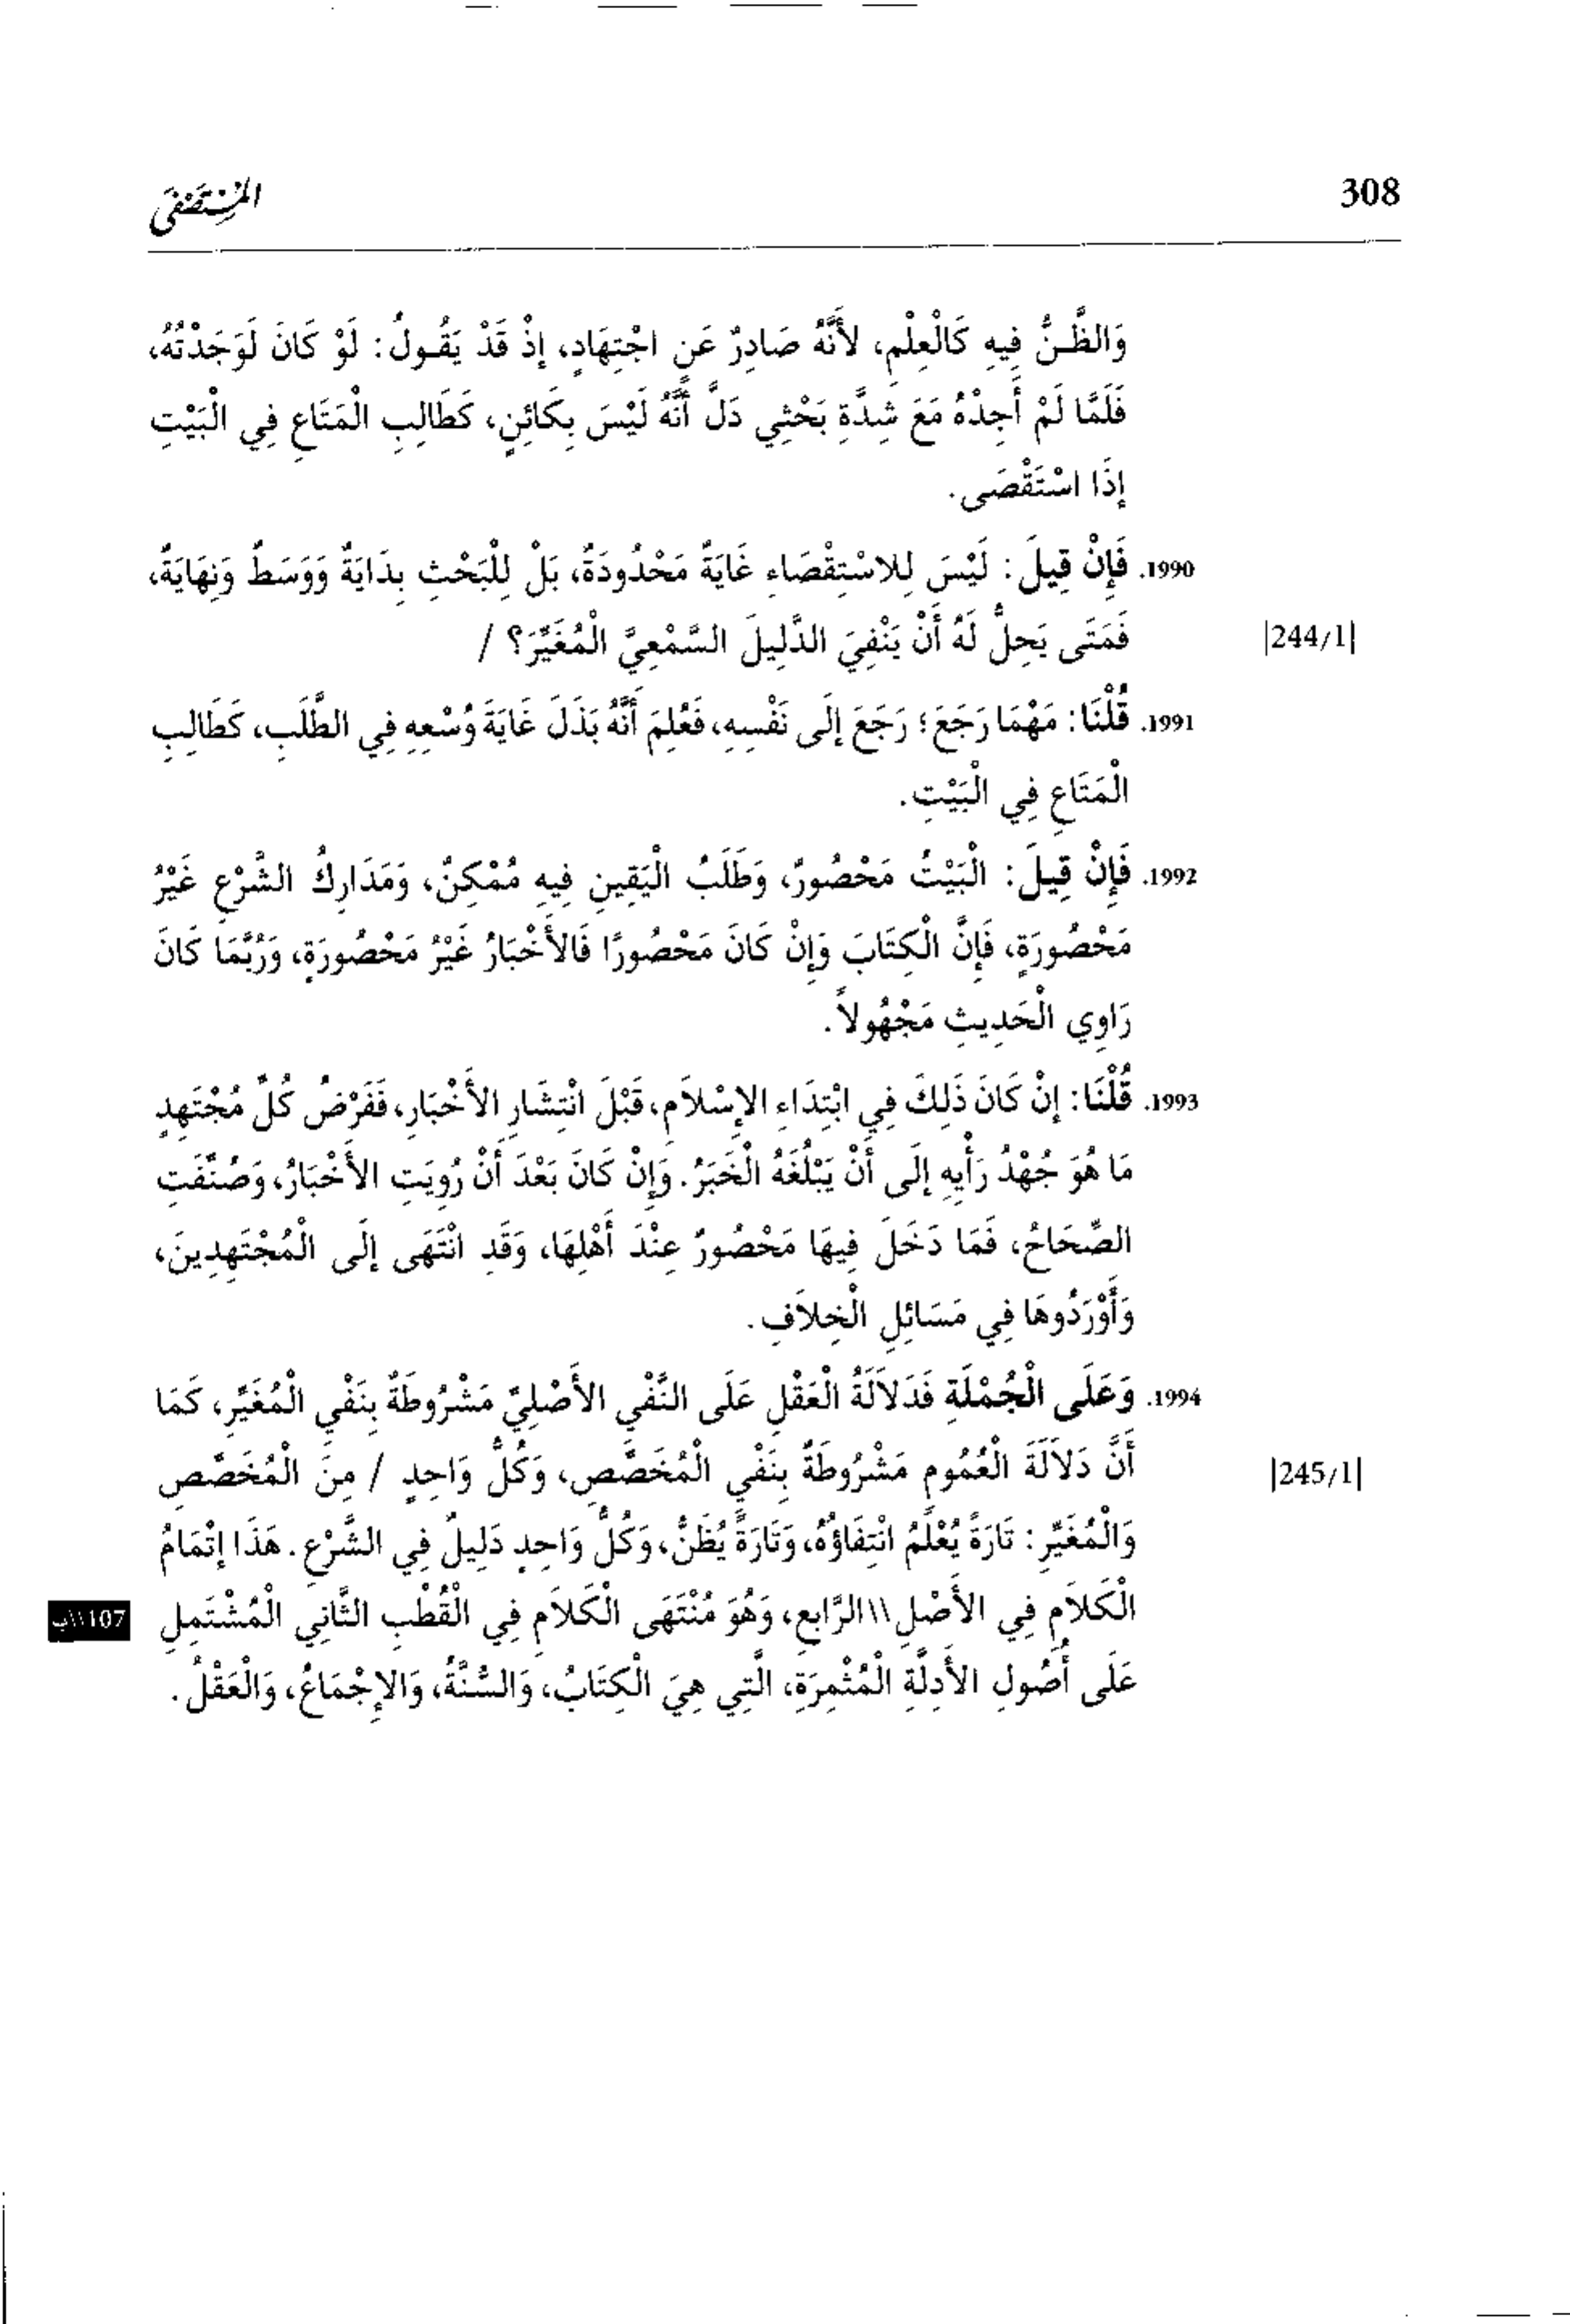 308
المُسْتَصْفَى
وَالظَّنُّ فِيهِ كَالْعِلْمِ، لأَنَّهُ صَادِرٌ عَنِ اجْتِهَادٍ، إِذْ قَدْ يَقُولُ: لَوْ كَانَ لَوَجَدْتُهُ،
فَلَمَّا لَمْ أَجِدْهُ مَعَ شِدَّةِ بَحْثِي دَلَّ أَنَّهُ لَيْسَ بِكَائِنٍ، كَطَالِبِ الْمَتَاعِ فِي الْبَيْتِ
إِذَا اسْتَقْصَى.
1990. فَإِنْ قِيلَ: لَيْسَ لِلاسْتِقْصَاءِ غَايَةٌ مَحْدُودَةٌ، بَلْ لِلْبَحْثِ بِدَايَةٌ وَوَسَطٌ وَنِهَايَةٌ،
فَمَتَى يَحِلُّ لَهُ أَنْ يَنْفِيَ الدَّلِيلَ السَّمْعِيَّ الْمُغَيِّرَ؟ / |244/1|
1991. قُلْنَا: مَهْمَا رَجَعَ؛ رَجَعَ إِلَى نَفْسِهِ، فَعُلِمَ أَنَّهُ بَذَلَ غَايَةَ وُسْعِهِ فِي الطَّلَبِ، كَطَالِبِ
الْمَتَاعِ فِي الْبَيْتِ.
1992. فَإِنْ قِيلَ: الْبَيْتُ مَحْصُورٌ، وَطَلَبُ الْيَقِينِ فِيهِ مُمْكِنٌ، وَمَدَارِكُ الشَّرْعِ غَيْرُ
مَحْصُورَةٍ، فَإِنَّ الْكِتَابَ وَإِنْ كَانَ مَحْصُورًا فَالأَخْبَارُ غَيْرُ مَحْصُورَةٍ، وَرُبَّمَا كَانَ
رَاوِي الْحَدِيثِ مَجْهُولاً.
1993. قُلْنَا: إِنْ كَانَ ذَلِكَ فِي ابْتِدَاءِ الإِسْلاَمِ، قَبْلَ انْتِشَارِ الأَخْبَارِ، فَفَرْضُ كُلِّ مُجْتَهِدٍ
مَا هُوَ جُهْدُ رَأْيِهِ إِلَى أَنْ يَبْلُغَهُ الْخَبَرُ. وَإِنْ كَانَ بَعْدَ أَنْ رُوِيَتِ الأَخْبَارُ، وَصُنِّفَتِ
الصِّحَاحُ، فَمَا دَخَلَ فِيهَا مَحْصُورٌ عِنْدَ أَهْلِهَا، وَقَدِ انْتَهَى إِلَى الْمُجْتَهِدِينَ،
وَأَوْرَدُوهَا فِي مَسَائِلِ الْخِلاَفِ.
1994. وَعَلَى الْجُمْلَةِ فَدَلاَلَةُ الْعَقْلِ عَلَى النَّفْيِ الأَصْلِيِّ مَشْرُوطَةٌ بِنَفْيِ الْمُغَيِّرِ، كَمَا
أَنَّ دَلاَلَةَ الْعُمُومِ مَشْرُوطَةٌ بِنَفْيِ الْمُخَصِّصِ، وَكُلُّ وَاحِدٍ / مِنَ الْمُخَصِّصِ |245/1|
وَالْمُغَيِّرِ: تَارَةً يُعْلَمُ انْتِفَاؤُهُ، وَتَارَةً يُظَنُّ، وَكُلُّ وَاحِدٍ دَلِيلٌ فِي الشَّرْعِ. هَذَا إِتْمَامُ
الْكَلاَمِ فِي الأَصْلِ \\ الرَّابِعِ، وَهُوَ مُنْتَهَى الْكَلاَمِ فِي الْقُطْبِ الثَّانِي الْمُشْتَمِلِ 107\\ب
عَلَى أُصُولِ الأَدِلَّةِ الْمُثْمِرَةِ، الَّتِي هِيَ الْكِتَابُ، وَالسُّنَّةُ، وَالإِجْمَاعُ، وَالْعَقْلُ.